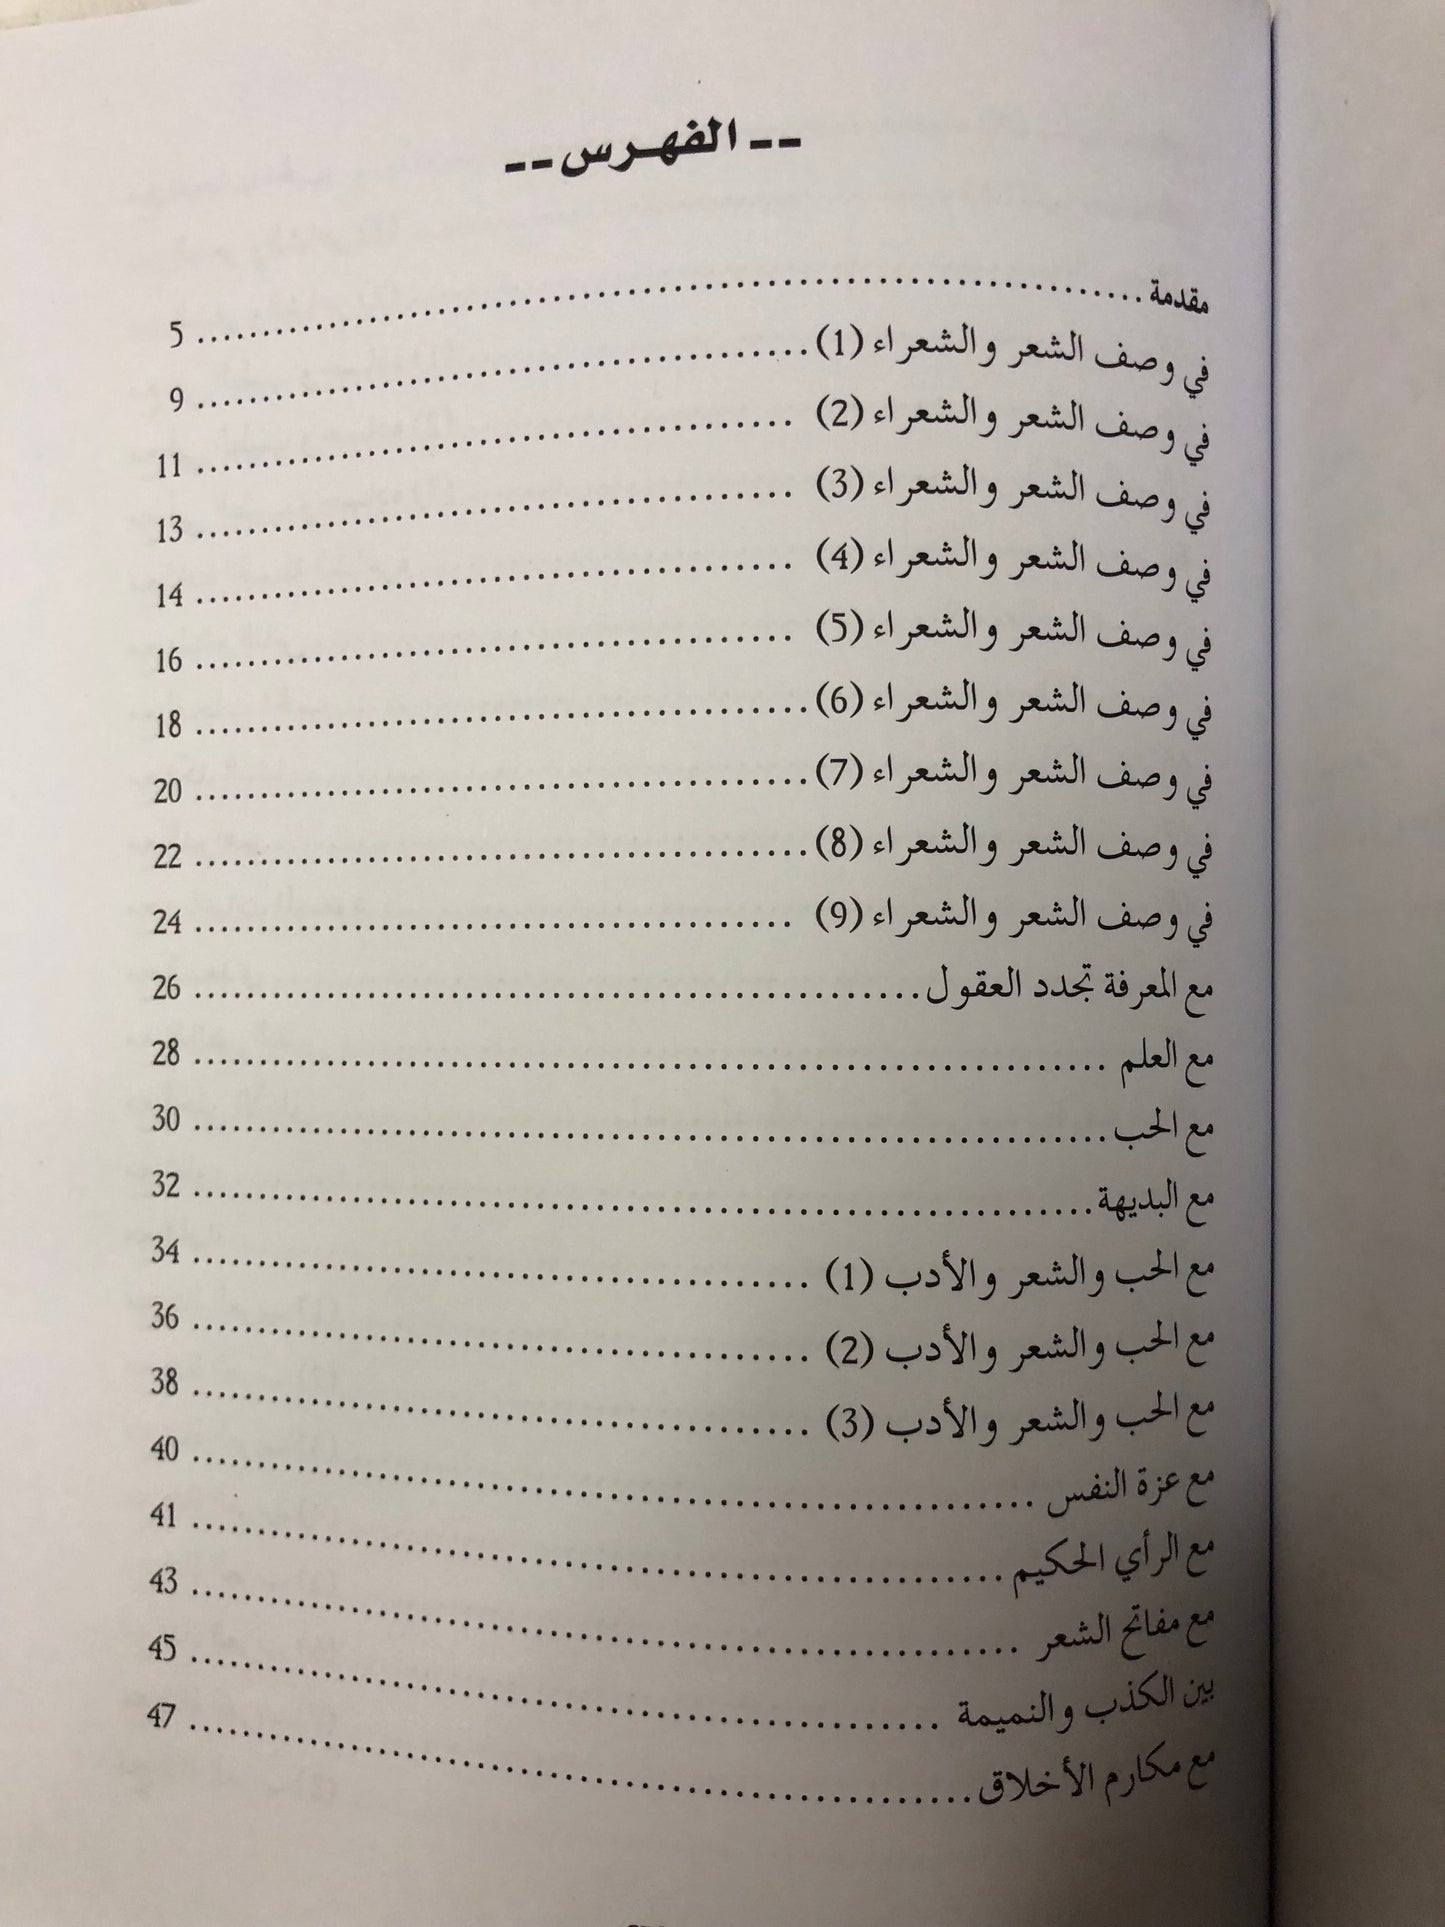 -- الفهرس --
مقدمة ........................................ 5
في وصف الشعر والشعراء (1) ........................................ 9
في وصف الشعر والشعراء (2) ........................................ 11
في وصف الشعر والشعراء (3) ........................................ 13
في وصف الشعر والشعراء (4) ........................................ 14
في وصف الشعر والشعراء (5) ........................................ 16
في وصف الشعر والشعراء (6) ........................................ 18
في وصف الشعر والشعراء (7) ........................................ 20
في وصف الشعر والشعراء (8) ........................................ 22
في وصف الشعر والشعراء (9) ........................................ 24
مع المعرفة تجدد العقول ........................................ 26
مع العلم ........................................ 28
مع الحب ........................................ 30
مع البديهة ........................................ 32
مع الحب والشعر والأدب (1) ........................................ 34
مع الحب والشعر والأدب (2) ........................................ 36
مع الحب والشعر والأدب (3) ........................................ 38
مع عزة النفس ........................................ 40
مع الرأي الحكيم ........................................ 41
مع مفاتح الشعر ........................................ 43
بين الكذب والنميمة ........................................ 45
مع مكارم الأخلاق ........................................ 47